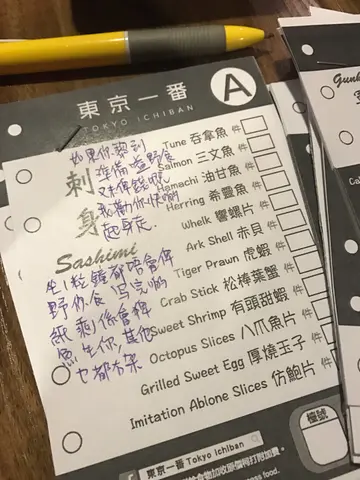 東京一番
TOKYO ICHIBAN
A
刺身
Sashimi
Tune 吞拿魚 件
Salmon 三文魚 件
Hamachi 油甘魚 件
Herring 希靈魚 件
Whelk 響螺片 件
Ark Shell 赤貝 件
Tiger Prawn 虎蝦 件
Crab Stick 松棒葉蟹 件
Sweet Shrimp 有頭甜蝦 件
Octopus Slices 八爪魚片 件
Grilled Sweet Egg 厚燒玉子 件
Imitation Ablone Slices 仿鮑片 件
如果你黎到
準備
又
我勸你快啲
起身走.
生1粒鐘都唔會俾
野你食, 寫完啲
紙 剩係會俾
魚生你, 其他
乜都冇
檯號
東京一番 Tokyo Ichiban
Gunk